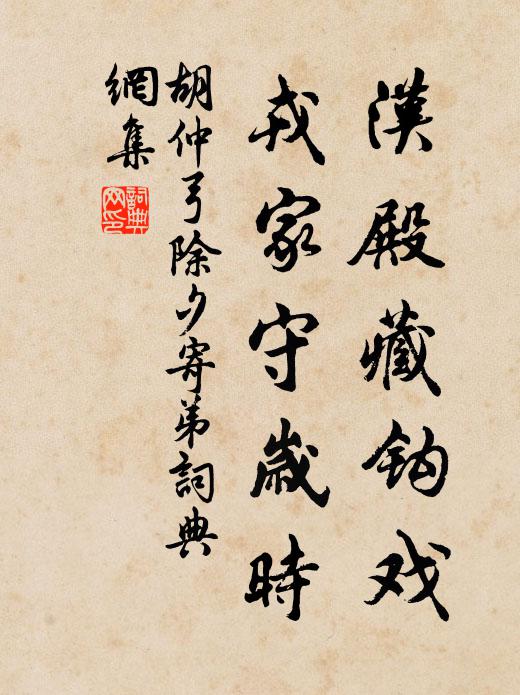 漢殿藏鈎戏
戎家守歲時
胡仲弓除夕寄弟詞典
網集
詞典
网印